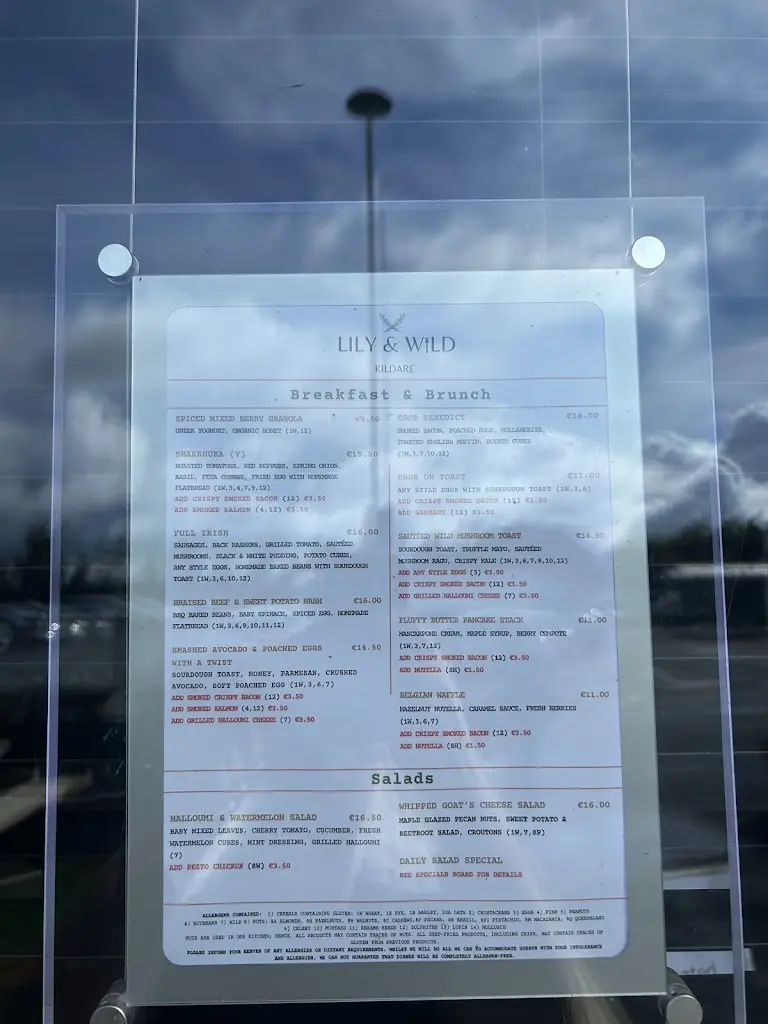 LILY & WILD
KILDARE
Breakfast & Brunch
SPICED MIXED BERRY GRANOLA €9.50
GREEK YOGHURT, ORGANIC HONEY (1W,12)
SHAKSHUKA (V) €15.50
ROASTED TOMATOES, RED PEPPERS, SPRING ONION,
BASIL, FETA CHEESE, FRIED EGG WITH HOMEMADE
FLATBREAD (1W,3,6,7,9,12)
ADD CRISPY SMOKED BACON (12) €3.50
ADD SMOKED SALMON (4,12) €3.50
FULL IRISH €16.00
SAUSAGES, BACK RASHERS, GRILLED TOMATO, SAUTÉED
MUSHROOMS, BLACK & WHITE PUDDING, POTATO CUBES,
ANY STYLE EGGS, HOMEMADE BAKED BEANS WITH SOURDOUGH
TOAST (1W,3,6,10,12)
BRAISED BEEF & SWEET POTATO HASH €16.00
BBQ BAKED BEANS, BABY SPINACH, SPICED EGG, HOMEMADE
FLATBREAD (1W,3,6,9,10,11,12)
SMASHED AVOCADO & POACHED EGGS €14.50
WITH A TWIST
SOURDOUGH TOAST, HONEY, PARMESAN, CRUSHED
AVOCADO, SOFT POACHED EGG (1W,3,6,7)
ADD SMOKED CRISPY BACON (12) €3.50
ADD SMOKED SALMON (4,12) €3.50
ADD GRILLED HALLOUMI CHEESE (7) €3.50
EGGS BENEDICT €14.00
SMOKED BACON, POACHED EGGS, HOLLANDAISE,
TOASTED ENGLISH MUFFIN, POTATO CUBES
(1W,3,7,10,12)
EGGS ON TOAST €11.00
ANY STYLE EGGS WITH SOURDOUGH TOAST (1W,3,6)
ADD CRISPY SMOKED BACON (12) €3.50
ADD SAUSAGE (12) €3.50
SAUTÉED WILD MUSHROOM TOAST €14.50
SOURDOUGH TOAST, TRUFFLE MAYO, SAUTÉED
MUSHROOM RAGU, CRISPY KALE (1W,3,6,7,9,10,12)
ADD ANY STYLE EGGS (3) €3.50
ADD CRISPY SMOKED BACON (12) €3.50
ADD GRILLED HALLOUMI CHEESE (7) €3.50
FLUFFY BUTTER PANCAKE STACK €11.00
MASCARPONE CREAM, MAPLE SYRUP, BERRY COMPOTE
(1W,3,7,12)
ADD CRISPY SMOKED BACON (12) €3.50
ADD NUTELLA (8H) €1.50
BELGIAN WAFFLE €11.00
HAZELNUT NUTELLA, CARAMEL SAUCE, FRESH BERRIES
(1W,3,6,7)
ADD CRISPY SMOKED BACON (12) €3.50
ADD NUTELLA (8H) €1.50
Salads
HALLOUMI & WATERMELON SALAD €16.50
BABY MIXED LEAVES, CHERRY TOMATO, CUCUMBER, FRESH
WATERMELON CUBES, MINT DRESSING, GRILLED HALLOUMI
(7)
ADD PESTO CHICKEN (8W) €3.50
WHIPPED GOAT'S CHEESE SALAD €16.00
MAPLE GLAZED PECAN NUTS, SWEET POTATO &
BEETROOT SALAD, CROUTONS (1W,7,8P)
DAILY SALAD SPECIAL
SEE SPECIALS BOARD FOR DETAILS
ALLERGENS CONTAINED: 1) CEREALS CONTAINING GLUTEN: 1W WHEAT, 1R RYE, 1B BARLEY, 1OA OATS 2) CRUSTACEANS 3) EGGS 4) FISH 5) PEANUTS
6) SOYBEANS 7) MILK 8) NUTS: 8A ALMONDS, 8H HAZELNUTS, 8W WALNUTS, 8C CASHEWS, 8P PECANS, 8B BRAZIL, 8PI PISTACHIO, 8M MACADAMIA, 8Q QUEENSLAND
9) CELERY 10) MUSTARD 11) SESAME SEEDS 12) SULPHITES 13) LUPIN 14) MOLLUSCS
NUTS ARE USED IN OUR KITCHEN; HENCE, ALL PRODUCTS MAY CONTAIN TRACES OF NUTS. ALL DEEP-FRIED PRODUCTS, INCLUDING CHIPS, MAY CONTAIN TRACES OF
GLUTEN FROM PREVIOUS PRODUCTS.
PLEASE INFORM YOUR SERVER OF ANY ALLERGIES OR DIETARY REQUIREMENTS. WHILST WE WILL DO ALL WE CAN TO ACCOMMODATE GUESTS WITH FOOD INTOLERANCE
AND ALLERGIES. WE CAN NOT GUARANTEE THAT DISHES WILL BE COMPLETELY ALLERGEN-FREE.